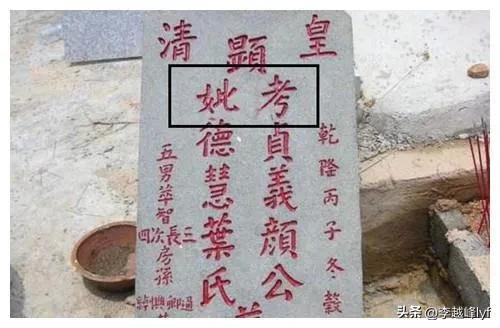 皇清
顯
乾隆丙子冬穀
考貞義顏公
妣德慧葉氏
五男萃智
三長次四
房孫
头条 @李越峰lyf